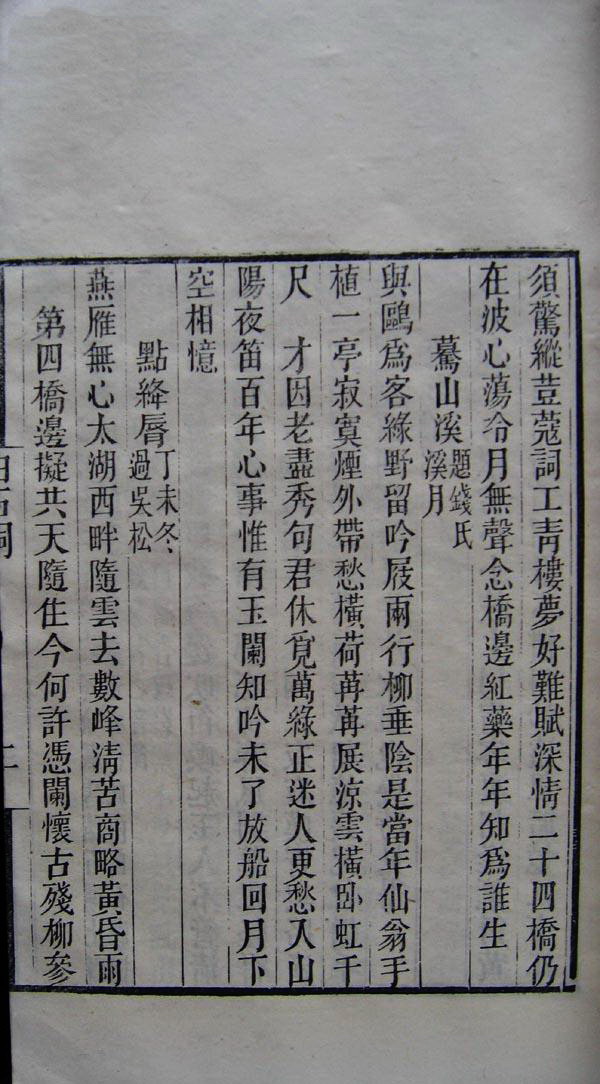 須驚縱荳蔻詞工靑樓夢好難賦深情二十四橋仍
在波心蕩冷月無聲念橋邊紅藥年年知爲誰生
驀山溪題錢氏溪月
與鷗爲客綠野留吟屐兩行柳垂陰是當年仙翁手
植一亭寂寞煙外帶愁橫荷苒苒展涼雲橫臥虹千
尺　才因老盡秀句君休覓萬綠正迷人更愁入山
陽夜笛百年心事惟有玉闌知吟未了放船回月下
空相憶
點絳脣丁未冬過吳松
燕雁無心太湖西畔隨雲去數峰淸苦商略黃昏雨
第四橋邊擬共天隨住今何許憑闌懷古殘柳參
白石詞